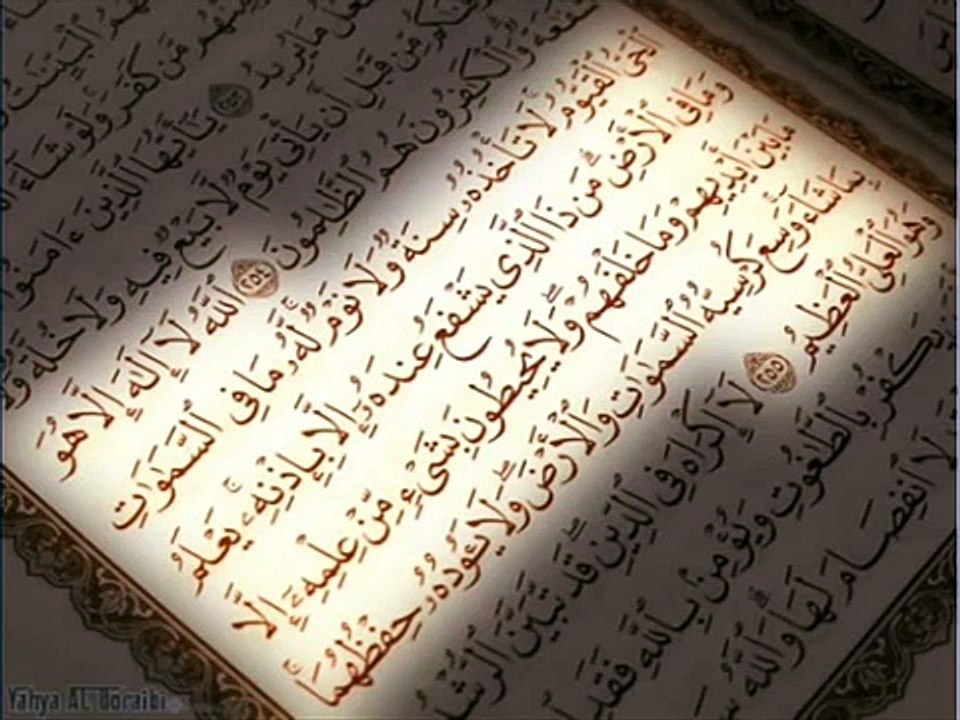 ٱلْبَيِّنَـٰتُ
مَّن كَفَرَ وَلَوْ شَآءَ
مَا يُرِيدُ ٢٥٣ يَـٰٓأَيُّهَا ٱلَّذِينَ ءَامَنُوٓا۟
مِّن قَبْلِ أَن يَأْتِىَ يَوْمٌ لَّا بَيْعٌ فِيهِ وَلَا خُلَّةٌ
شَفَـٰعَةٌ وَٱلْكَـٰفِرُونَ هُمُ ٱلظَّـٰلِمُونَ ٢٥٤ ٱللَّهُ لَآ إِلَـٰهَ إِلَّا هُوَ
ٱلْحَىُّ ٱلْقَيُّومُ لَا تَأْخُذُهُۥ سِنَةٌ وَلَا نَوْمٌ لَّهُۥ مَا فِى ٱلسَّمَـٰوَٰتِ
وَمَا فِى ٱلْأَرْضِ مَن ذَا ٱلَّذِى يَشْفَعُ عِندَهُۥٓ إِلَّا بِإِذْنِهِۦ يَعْلَمُ
مَا بَيْنَ أَيْدِيهِمْ وَمَا خَلْفَهُمْ وَلَا يُحِيطُونَ بِشَىْءٍ مِّنْ عِلْمِهِۦٓ إِلَّا
بِمَا شَآءَ وَسِعَ كُرْسِيُّهُ ٱلسَّمَـٰوَٰتِ وَٱلْأَرْضَ وَلَا يَـُٔودُهُۥ حِفْظُهُمَا
وَهُوَ ٱلْعَلِىُّ ٱلْعَظِيمُ ٢٥٥ لَآ إِكْرَاهَ فِى ٱلدِّينِ قَد تَّبَيَّنَ ٱلرُّشْدُ
يَكْفُرْ بِٱلطَّـٰغُوتِ وَيُؤْمِنۢ بِٱللَّهِ فَقَدِ
لَا ٱنفِصَامَ لَهَا وَٱللَّهُ
Yahya AL Doraibi